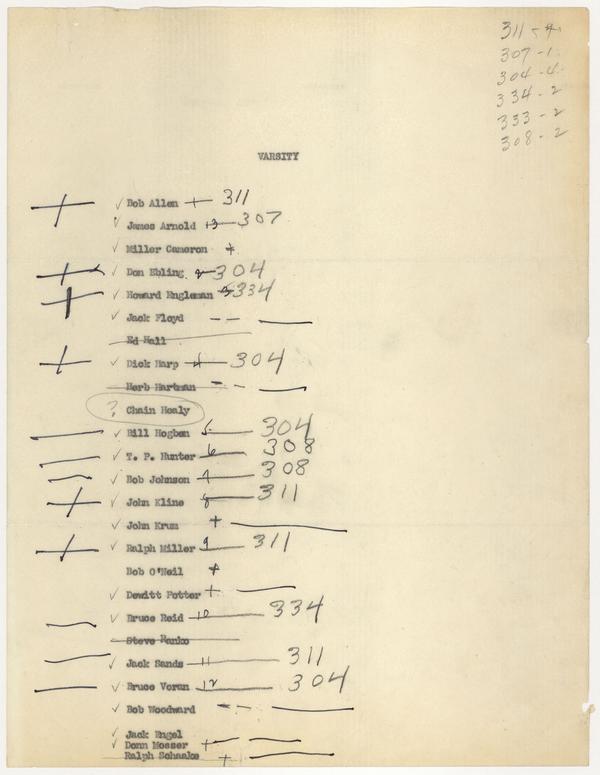 311 - 4
307 - 1
304 - 4
334 - 2
333 - 2
308 - 2
VARSITY
✓ Bob Allen 311
✓ James Arnold 307
✓ Miller Cameron +
✓ Don Ebling 2 304
✓ Howard Engleman 3 334
✓ Jack Floyd - -
Ed Hall
✓ Dick Harp 4 304
Herb Hartman - -
? Chain Healy
✓ Bill Hogben 5 304
✓ T. P. Hunter 6 308
✓ Bob Johnson 7 308
✓ John Kline 8 311
✓ John Krum +
✓ Ralph Miller 9 311
Bob O'Neil +
✓ Dewitt Potter +
✓ Bruce Reid 10 334
Steve Ranko
✓ Jack Sands 11 311
✓ Bruce Voran 12 304
✓ Bob Woodward - -
✓ Jack Engel
✓ Donn Mosser +
Ralph Schaake +